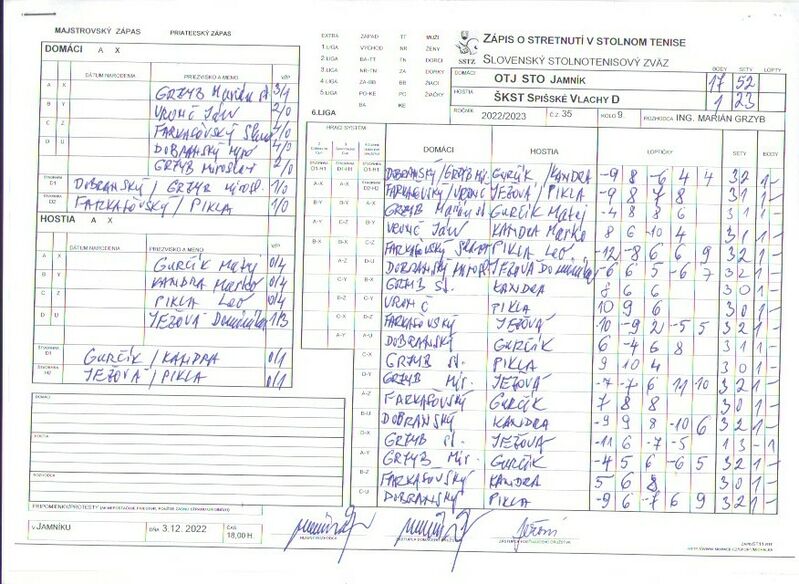 MAJSTROVSKÝ ZÁPAS PRIATEĽSKÝ ZÁPAS
DOMÁCI A X
DÁTUM NARODENIA PRIEZVISKO A MENO V/P
A X GRZYB Marián st 3/1
B Y VRONČ Ján 4/0
C Z FARKAŠOVSKÝ 4/0
D U DOBRANSKÝ Miro 4/0
GRZYB Miroslav 2/0
D1 DOBRANSKÝ / GRZYB Mirosl. 1/0
D2 FARKAŠOVSKÝ / PIKLA 1/0
HOSTIA A X
DÁTUM NARODENIA PRIEZVISKO A MENO V/P
A X GURČÍK Matej 0/4
B Y KANDRA Marko 0/4
C Z PIKLA Leo 0/4
D U JEŽOVÁ Dominika 1/3
D1 GURČÍK / KANDRA 0/1
D2 JEŽOVÁ / PIKLA 0/1
DOMÁCI
HOSTIA
ROZHODCA
V JAMNÍKU DŇA 3.12. 2022 ČAS 18,00 H.
EXTRA ZÁPAD TT MUŽI
1.LIGA VÝCHOD NR ŽENY
2.LIGA BA-TT TN DORCI
3.LIGA NR-TN ZA DORKY
4.LIGA ZA-BB BB ŽIACI
5.LIGA PO-KE PO ŽIAČKY
BA KE
6.LIGA
SSTZ
ZÁPIS O STRETNUTÍ V STOLNOM TENISE
SLOVENSKÝ STOLNOTENISOVÝ ZVÄZ
BODY SETY LOPTY
DOMÁCI OTJ STO JAMNÍK 17 52
HOSTIA ŠKST SPIŠSKÉ VLACHY D 1 23
ROČNÍK 2022/2023 Č.Z. 35 KOLO 9. ROZHODCA ING. MARIÁN GRZYB
HRACÍ SYSTÉM DOMÁCI HOSTIA LOPTIČKY SETY BODY
DOBRANSKÝ/GRZYB Mi. GURČÍK/KANDRA -9 8 -6 4 4 3 2 1 -
FARKAŠOVSKÝ/VRONČ JEŽOVÁ/PIKLA -9 8 7 8 3 1 1 -
GRZYB Marián st GURČÍK Matej -4 8 8 6 3 1 1 -
VRONČ Ján KANDRA Marko 8 6 -10 4 3 1 1 -
FARKAŠOVSKÝ PIKLA Leo -12 -8 6 6 9 3 2 1 -
DOBRANSKÝ Mirosl JEŽOVÁ Dominika -6 6 5 -6 7 3 2 1 -
GRZYB st. KANDRA 8 6 6 3 0 1 -
VRONČ PIKLA 10 9 6 3 0 1 -
FARKAŠOVSKÝ JEŽOVÁ -10 -9 2 -5 5 3 2 1 -
DOBRANSKÝ GURČÍK 6 -4 6 8 3 1 1 -
GRZYB st. PIKLA 9 10 4 3 0 1 -
GRZYB Mir. JEŽOVÁ -7 -7 6 11 10 3 2 1 -
FARKAŠOVSKÝ GURČÍK 7 8 8 3 0 1 -
DOBRANSKÝ KANDRA -9 9 8 -10 6 3 2 1 -
GRZYB st. JEŽOVÁ -11 6 -7 -5 1 3 - 1
GRZYB Mir. GURČÍK -4 5 6 -6 5 3 2 1 -
FARKAŠOVSKÝ KANDRA 5 6 8 3 0 1 -
DOBRANSKÝ PIKLA -9 6 -7 6 9 3 2 1 -